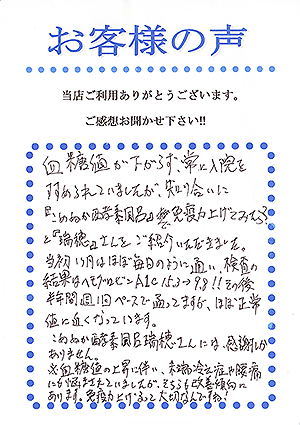 お客様の声
当店ご利用ありがとうございます。
ご感想お聞かせ下さい!!
血糖値が下がらず、常に入院を
求められていましたが、知り合いに
『こめぬか酵素風呂』で免疫力上げてみたら
と『瑞穂』さんをご紹介いただきました。
当初1ヶ月はほぼ毎日のように通い、検査の
結果はヘモグロビンA1c 15.3→9.8!!その後
半年間週1回ペースで通ってますが、ほぼ正常
値に近くなっています。
こめぬか酵素風呂瑞穂さんには、感謝しか
ありません。
※血糖値の上昇に伴い、末端冷え症や腰痛
にも悩まされていましたが、そちらも改善傾向に
あります。免疫力上げるって大切なんですね!